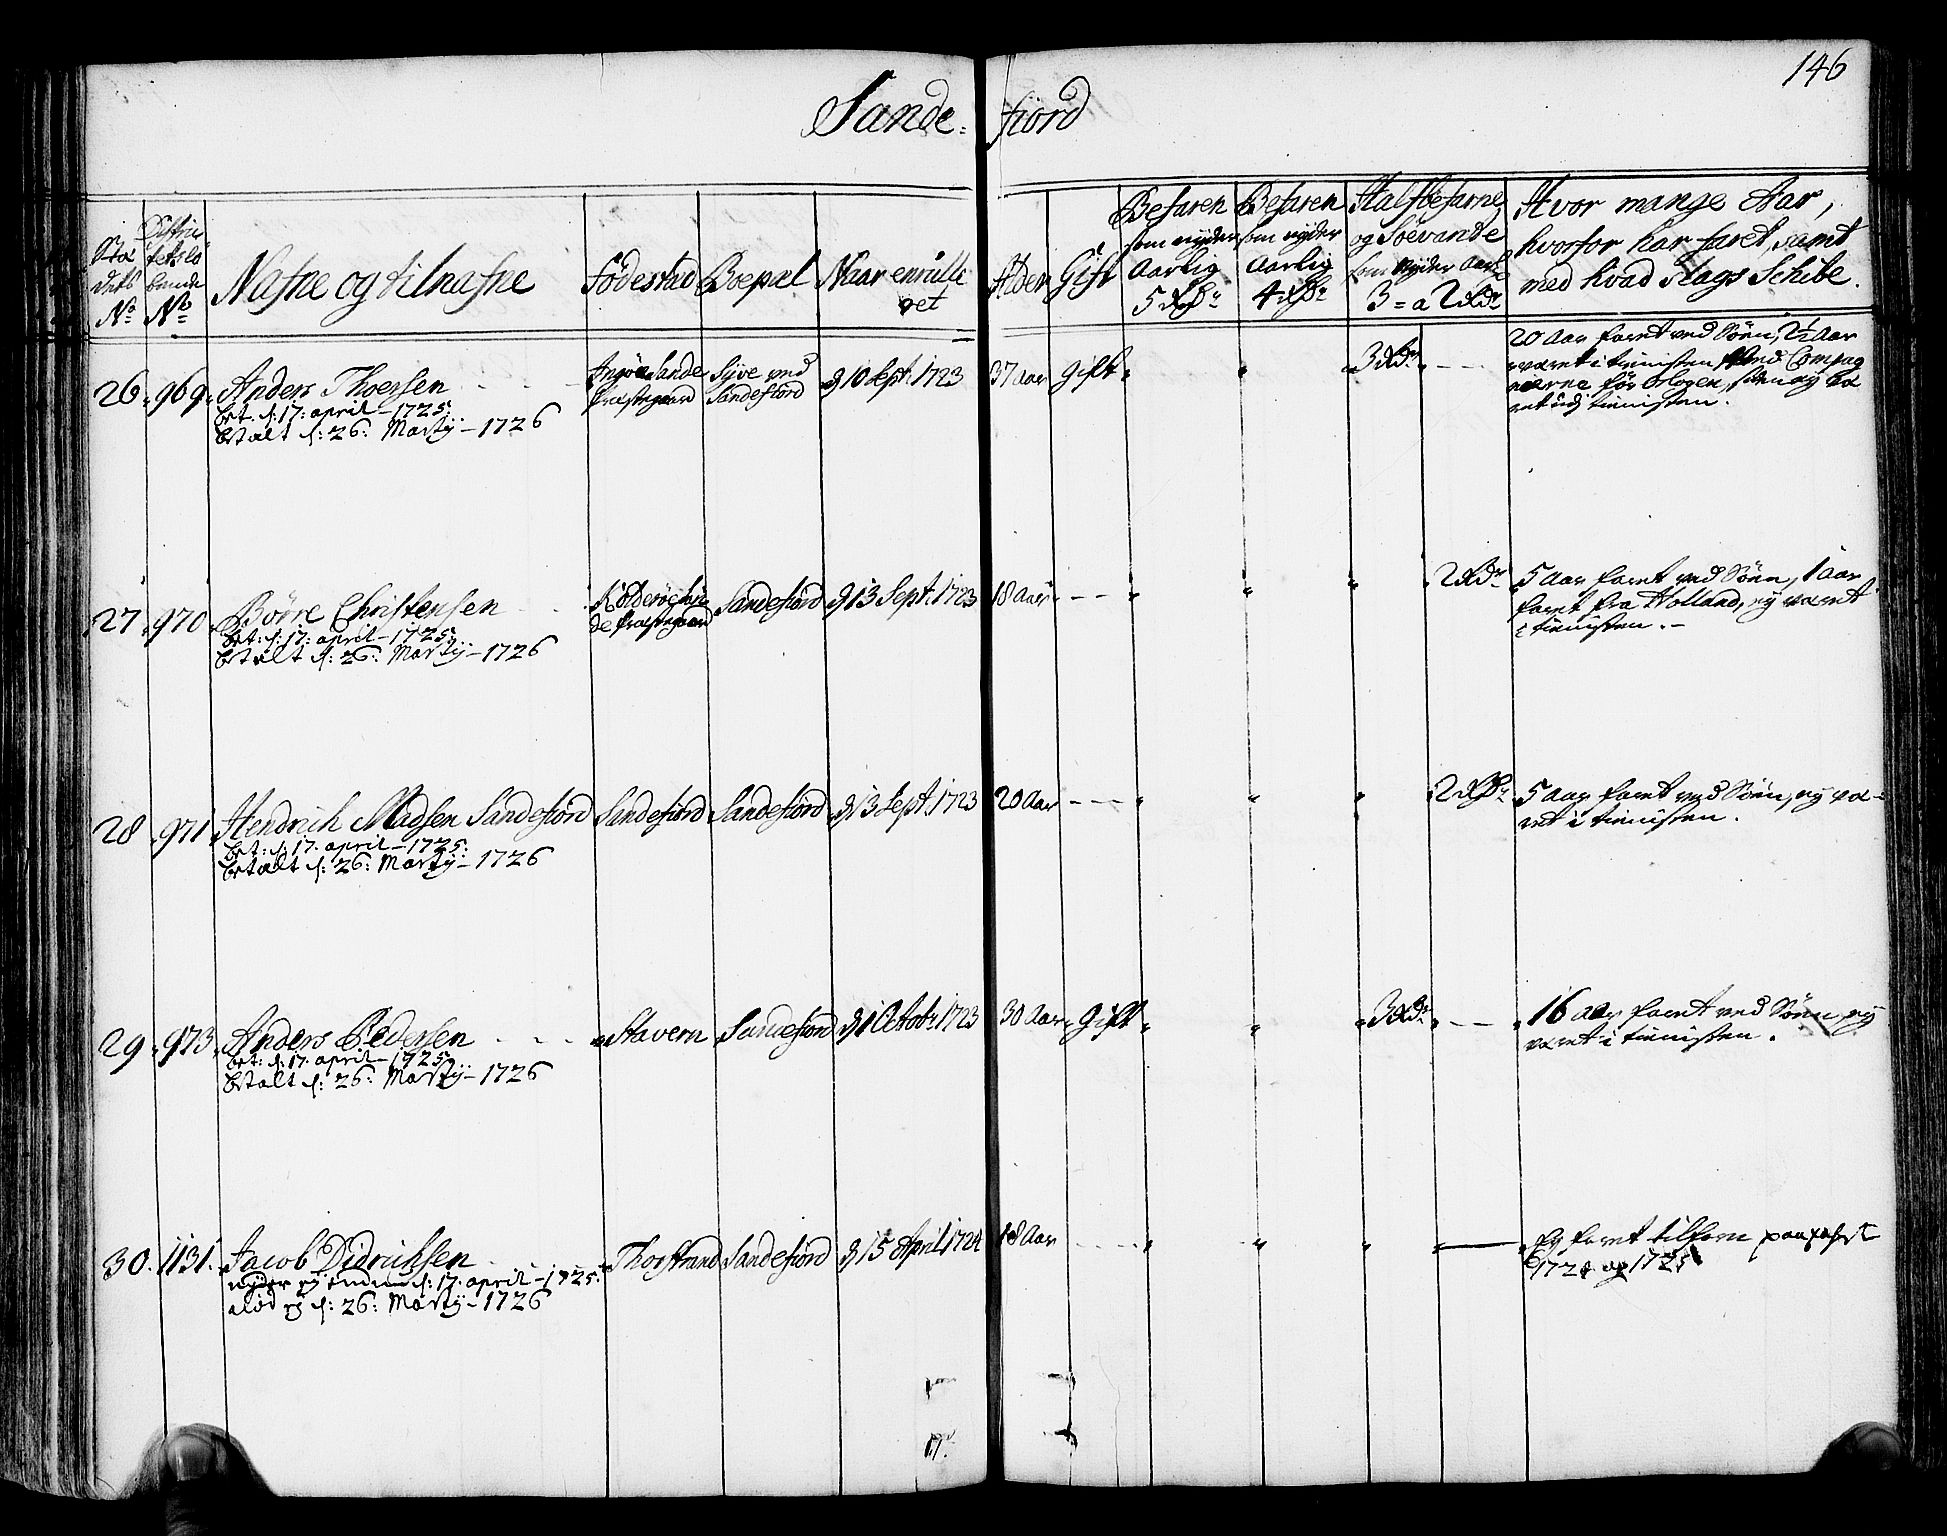 146
Sande= fiord
Sta
dets
No
Distric
tets lö
bende
No
Nafne og tilnafne
Födestad
Boepæl
Naar enrulle
ret
Alder
Gift
Befaren
som nyder
Aarlig
5 Rdr
Befaren
som nyder
Aarlig
4 Rdr
Halfbefarne
og Söevande
som nyder Aarl
3 = a 2 Rdr
Hvor mange Aar,
hvorfor har faret, samt
med hvad slags Schibe.
26. 969. Anders Thoersen
bet: d: 17: april - 1725:
betalt d: 26: Martÿ - 1726
præstegaard
Syve ved
Sandefiord
d 10 Sept. 1723
37 aar
gift
3 Rdr
20 Aar faret ved Söen, 2½ Aar
været i tienisten
ret udj tienisten.
27. 970. Börre Christensen
bet: d: 17: april - 1725:
betalt d: 26: Martÿ - 1726
de præstegaard
Sandefiord
d 13 Sept. 1723
18 aar
2 Rdr
5 Aar faret ved Söen, 1 aar
faret fra Holland, ey været
i tienisten.
28. 971. Hendrich Madsen Sandefiord
bet: d: 17: april - 1725:
betalt d: 26: Martÿ - 1726
Sandefiord
Sandefiord
d 13 Sept. 1723
20 Aar
2 Rdr
5 Aar faret ved Söen, ey væ-
ret i tienisten.
29. 973. Anders Pedersen
bet: d: 17: april - 1725:
betalt d: 26: Martÿ - 1726
Stavern
Sandefiord
d 1 Octobr 1723
30 Aar
Gift
3 Rdr
16 Aar faret ved Söen ey
været i tienisten.
30. 1131. Jacob Didrichsen
nyder ey d: 17: april - 1725:
ey d: 26: Martÿ - 1726
Thorstrand
Sandefiord
d 15 April 1724
18 Aar
Ey faret tilforn
1724 og 1725